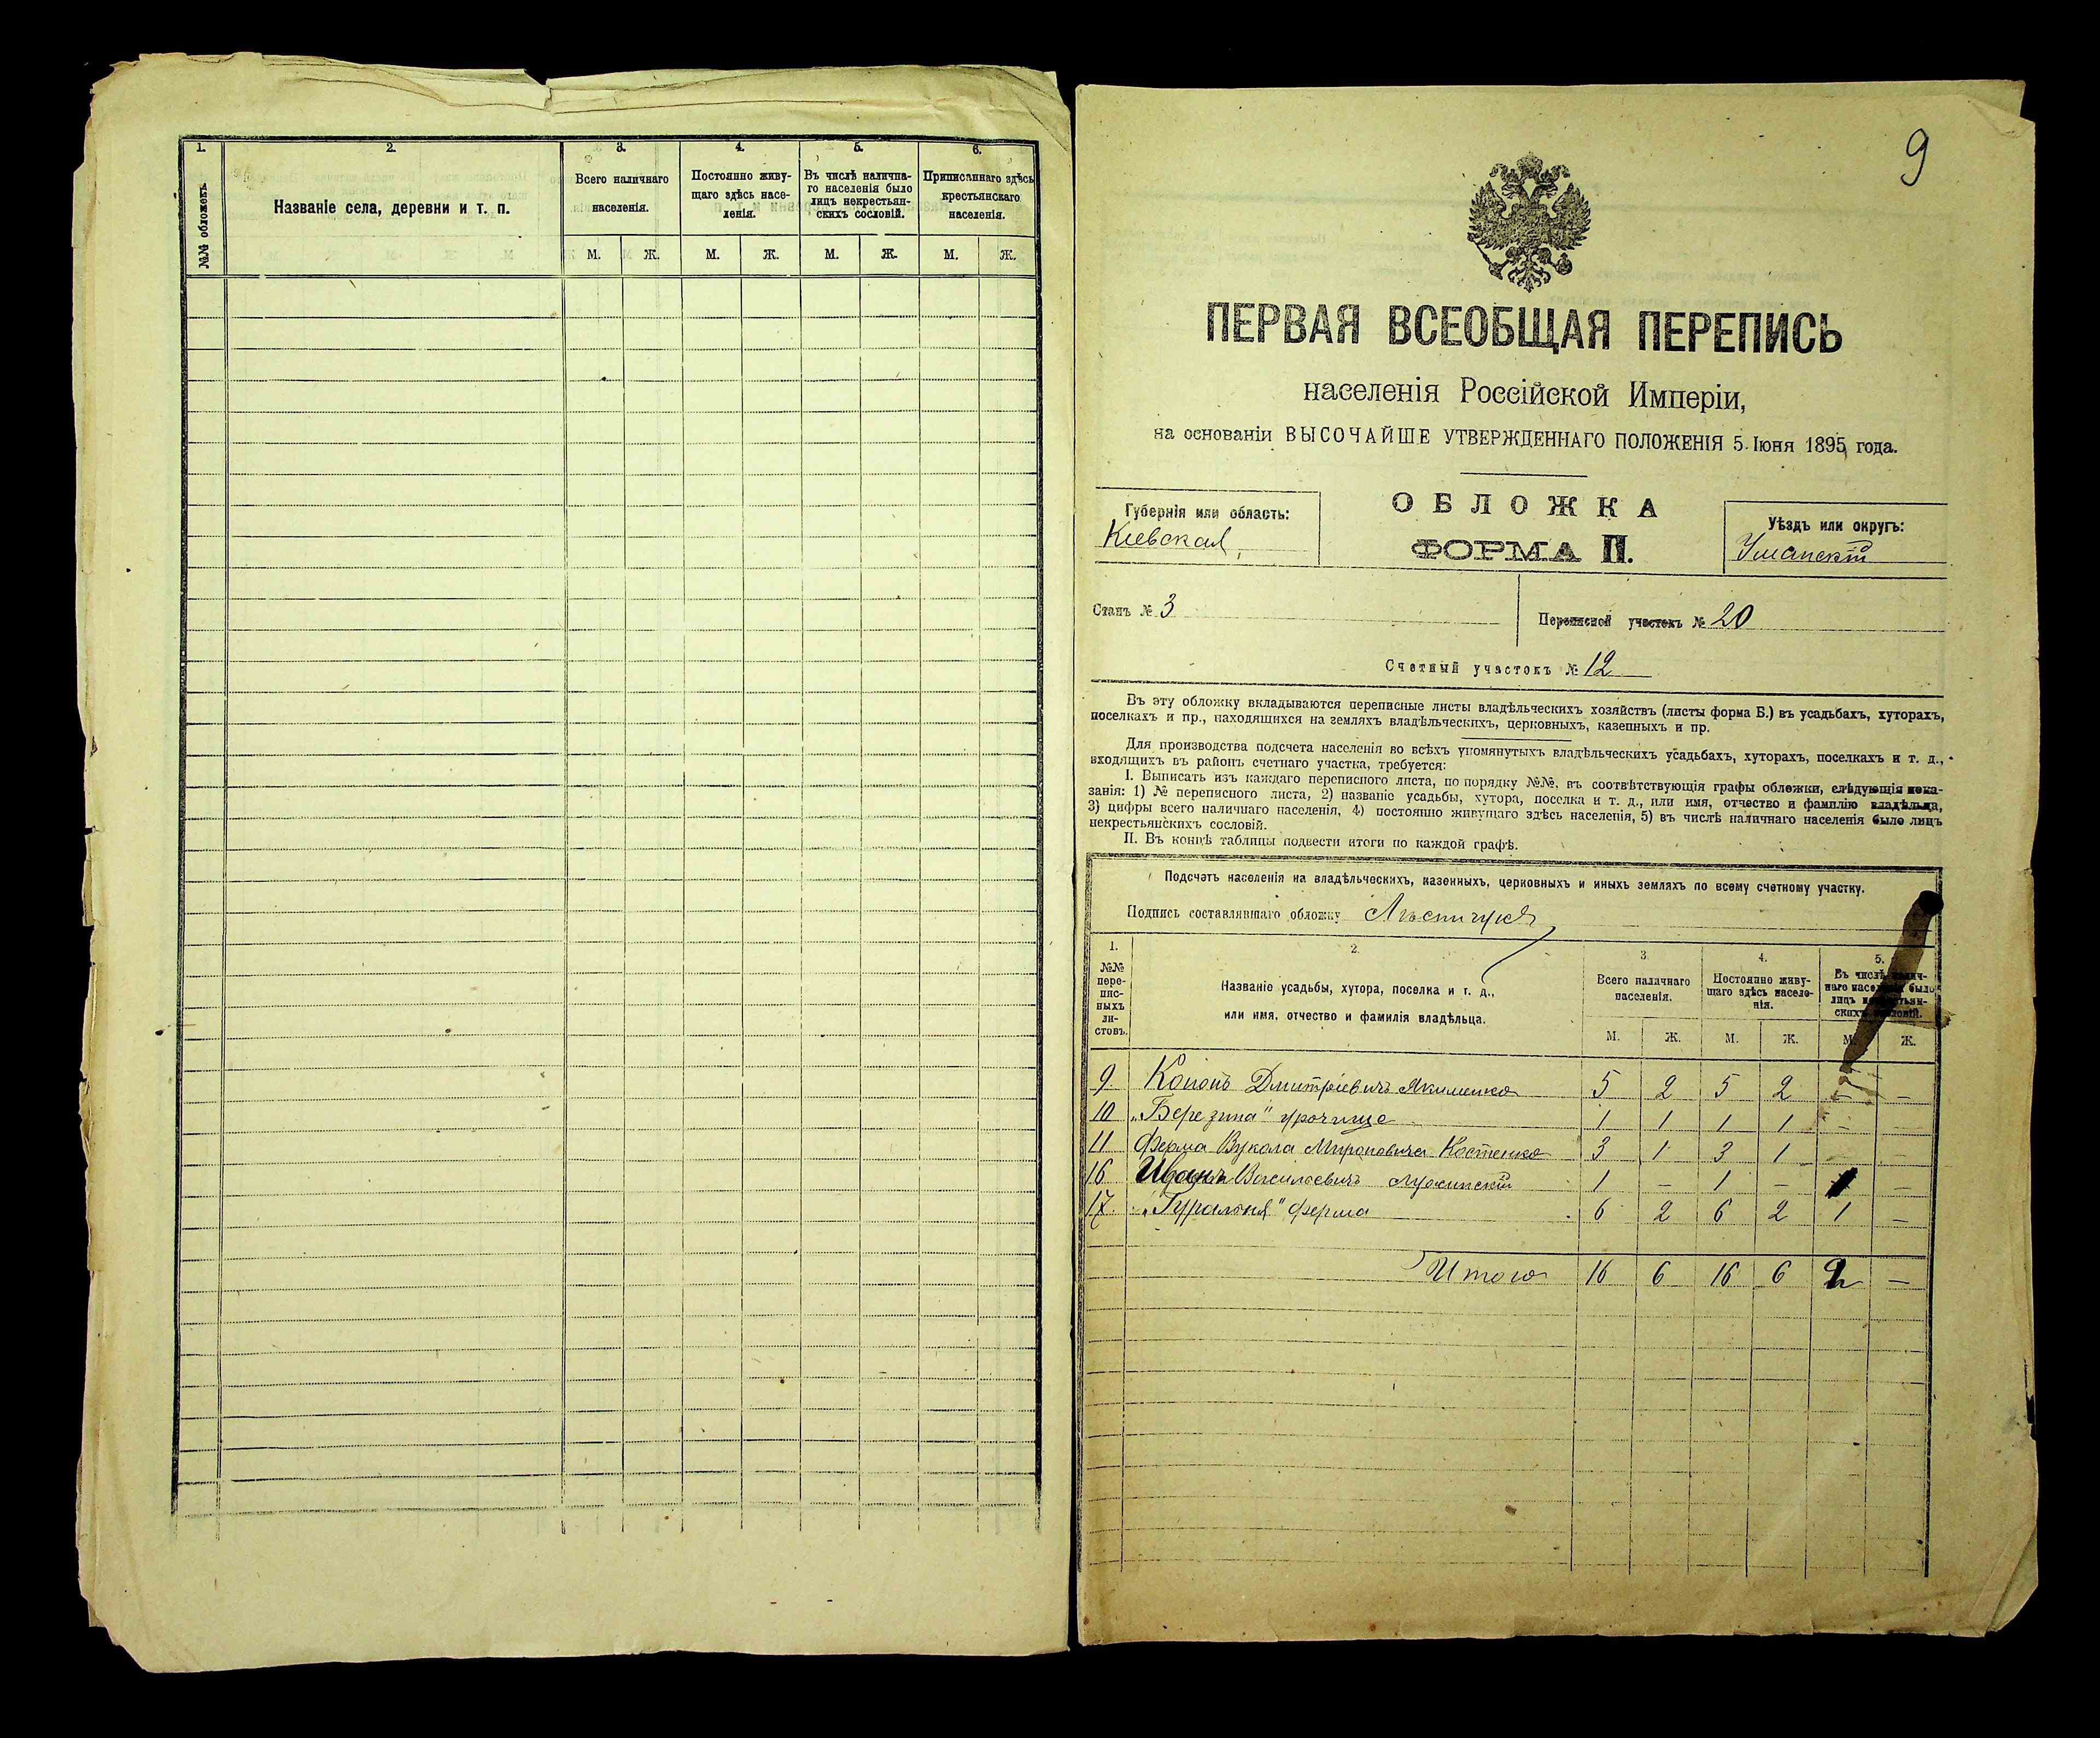 1.
2.
3.
4.
5.
6.
№№ обложекъ.
Названіе села, деревни и т. п.
Всего наличнаго
населенія.
Постоянно живу-
щаго здѣсь насе-
ленія.
Въ числѣ налична-
го населенія было
лицъ некрестьян-
скихъ сословій.
Приписаннаго здѣсь
крестьянскаго
населенія.
М. Ж. М. Ж. М. Ж. М. Ж.
9
ПЕРВАЯ ВСЕОБЩАЯ ПЕРЕПИСЬ
населенія Россійской Имперіи,
на основаніи ВЫСОЧАЙШЕ УТВЕРЖДЕННАГО ПОЛОЖЕНІЯ 5 Іюня 1895 года.
Губернія или область:
Кіевская
ОБЛОЖКА
ФОРМА II.
Уѣздъ или округъ:
Уманскій
Станъ № 3
Переписной участокъ № 20
Счетный участокъ № 12
Въ эту обложку вкладываются переписные листы владѣльческихъ хозяйствъ (листы форма Б.) въ усадьбахъ, хуторахъ,
поселкахъ и пр., находящихся на земляхъ владѣльческихъ, церковныхъ, казенныхъ и пр.
Для производства подсчета населенія во всѣхъ упомянутыхъ владѣльческихъ усадьбахъ, хуторахъ, поселкахъ и т. д.,
входящихъ въ районъ счетнаго участка, требуется:
I. Выписать изъ каждаго переписного листа, по порядку №№, въ соотвѣтствующія графы обложки, слѣдующія пока-
занія: 1) № переписного листа, 2) названіе усадьбы, хутора, поселка и т. д., или имя, отчество и фамилію владѣльца,
3) цифры всего наличнаго населенія, 4) постоянно живущаго здѣсь населенія, 5) въ числѣ наличнаго населенія было лицъ
некрестьянскихъ сословій.
II. Въ концѣ таблицы подвести итоги по каждой графѣ.
Подсчетъ населенія на владѣльческихъ, казенныхъ, церковныхъ и иныхъ земляхъ по всему счетному участку.
Подпись составлявшаго обложку
1.
2.
3.
4.
5.
№№
пере-
пис-
ныхъ
ли-
стовъ.
Названіе усадьбы, хутора, поселка и т. д.,
или имя, отчество и фамилія владѣльца.
Всего наличнаго
населенія.
Постоянно живу-
щаго здѣсь населе-
нія.
Въ числѣ налич-
наго населенія было
лицъ некрестьян-
скихъ сословій.
М. Ж. М. Ж. М. Ж.
9. Кононъ Дмитріевичъ Якименко 5 2 5 2 — —
10 „Березина" урочище 1 1 1 1 — —
11 Ферма Вукола Мироновича Костенко 3 1 3 1 — —
16 Иванъ Васильевичъ 1 — 1 — 1 —
17. „Гуральня" ферма 6 2 6 2 1 —
Итого 16 6 16 6 2 —